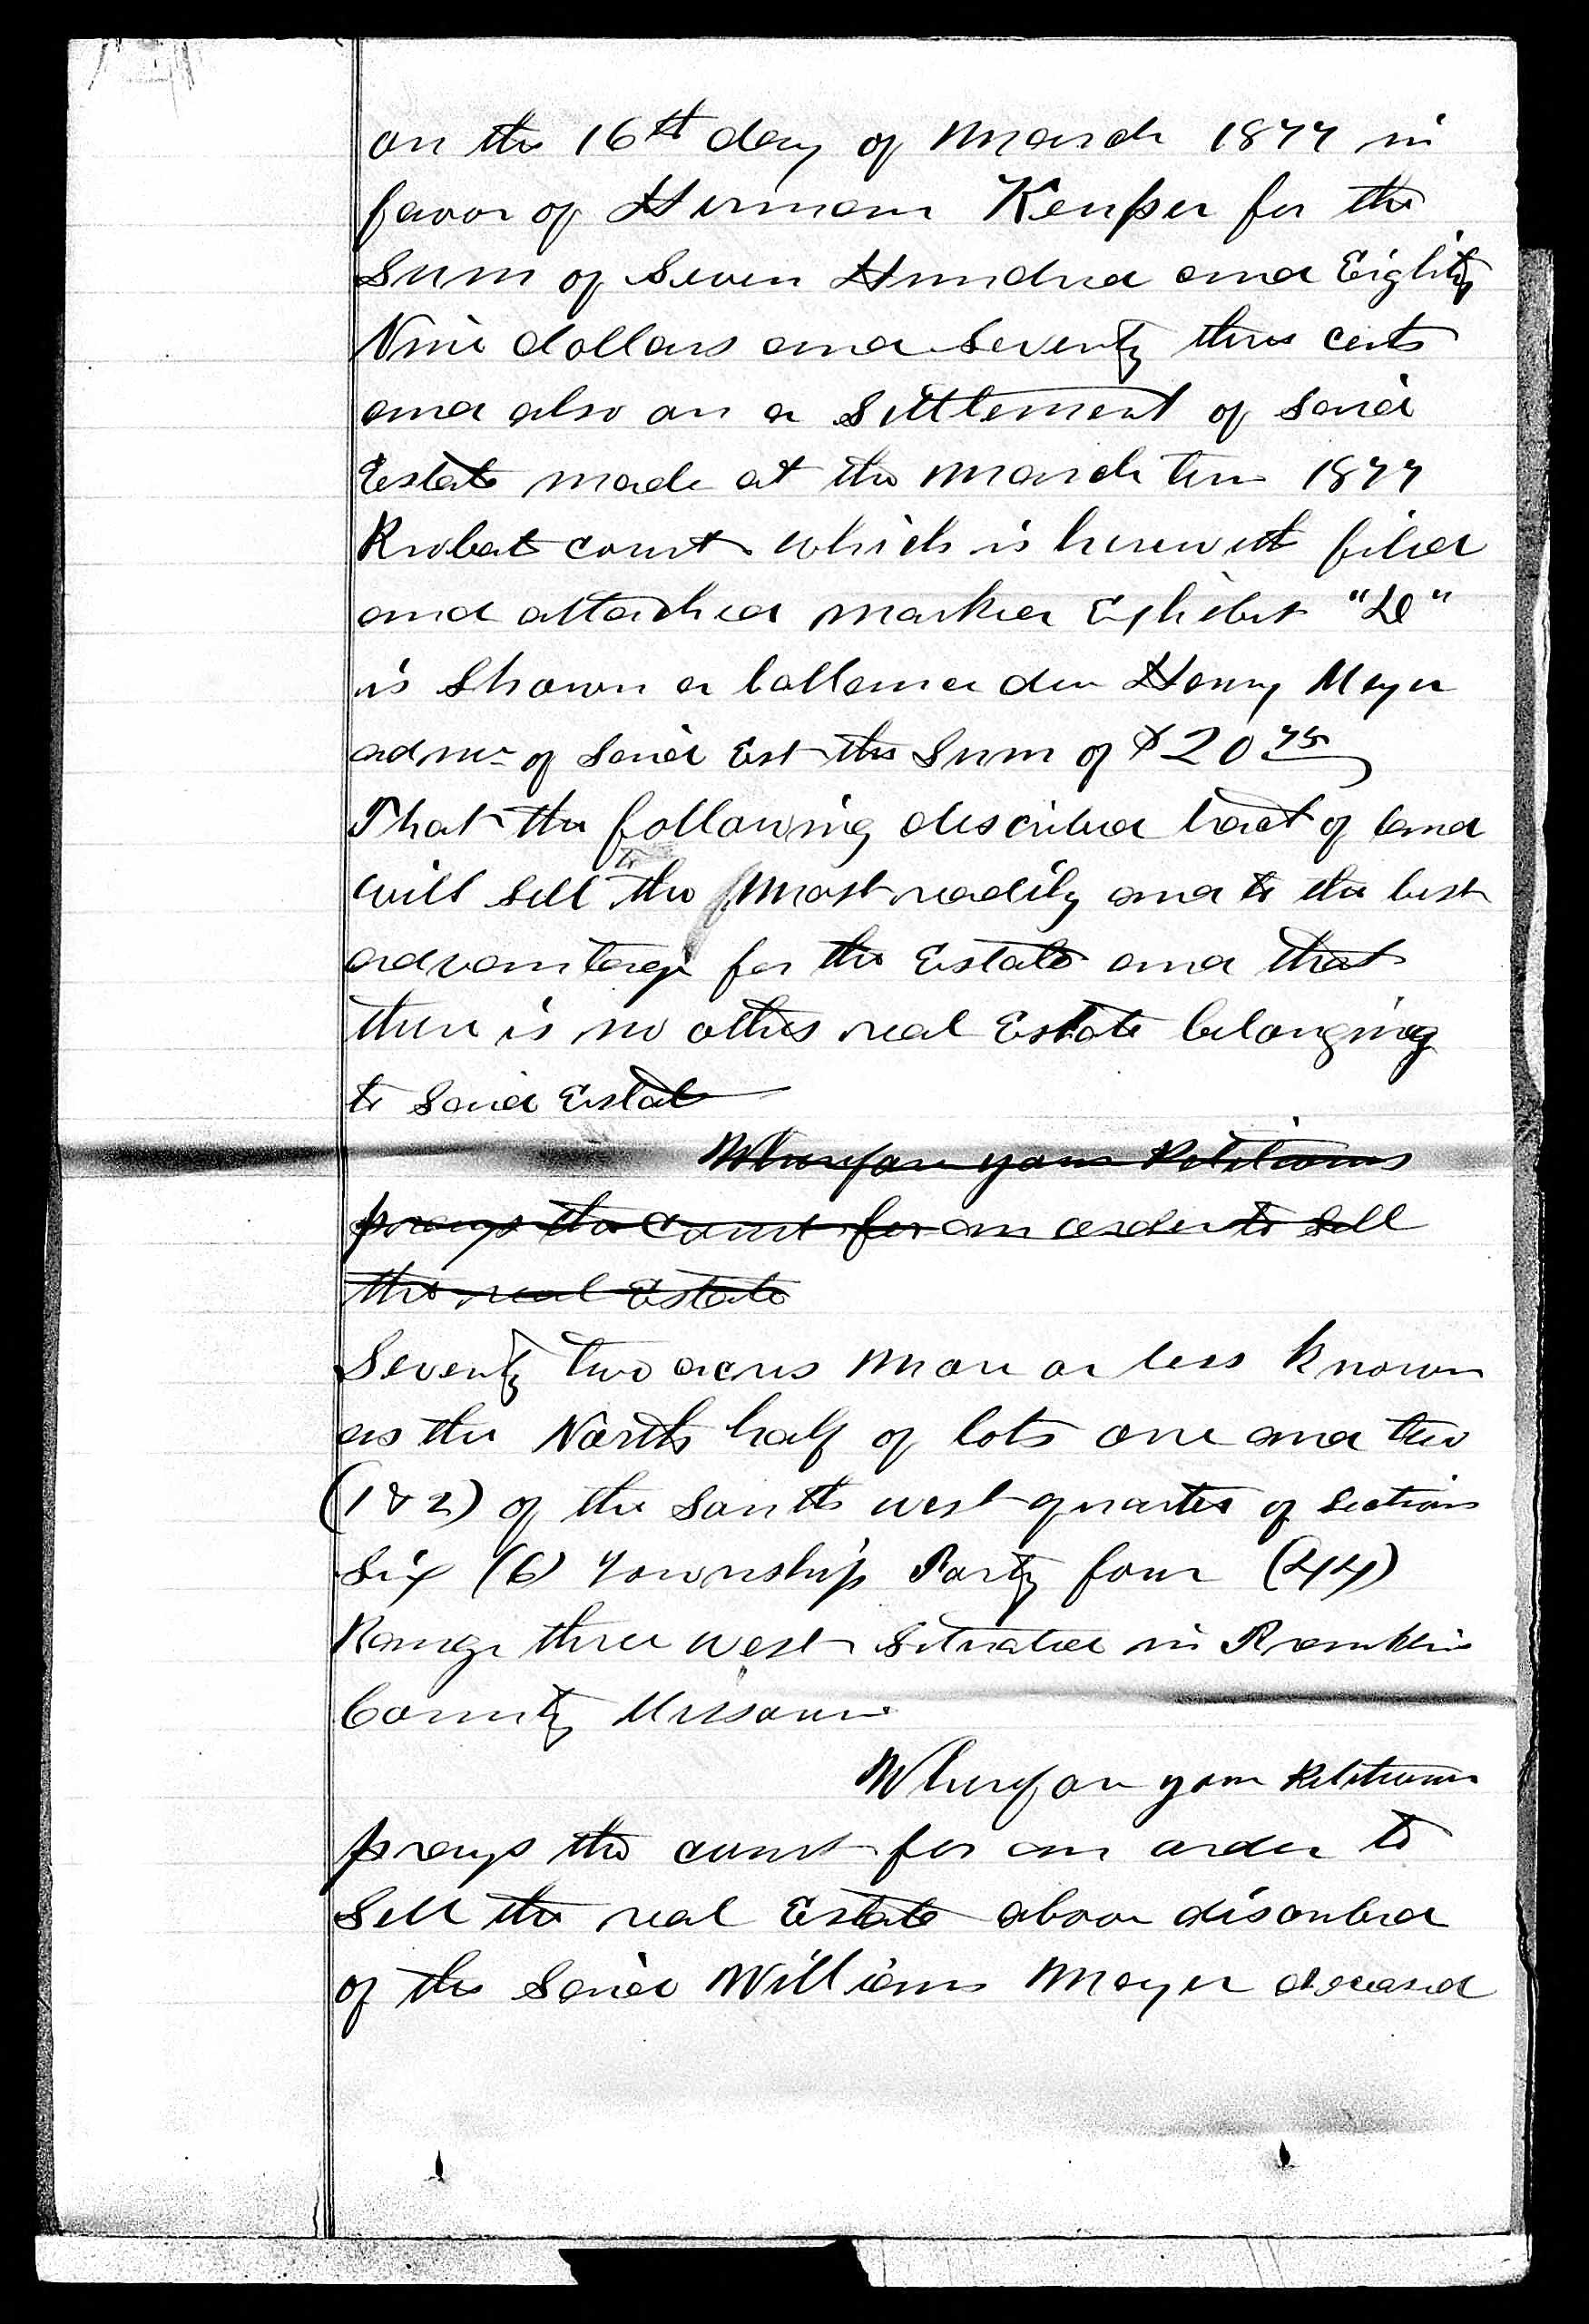 on the 16th day of March 1877 in
favor of Herman Kemper for the
Sum of Seven Hundred and Eighty
Nine dollars and Seventy three cents
and also on a Settlement of said
Estate made at the March term 1877
Probate court which is herewith filed
and attached marked Exhibit "D"
is Shown a ballance due Henry Meyer
admr of said Est the Sum of $20 75
That the following described tract of land
will sell the most readily and to the best
advantage for the Estate and that
there is no other real Estate belonging
to said Estate
Wherefore your Petitioner
prays the Court for an order to Sell
the real Estate
Seventy two acres more or less known
as the North half of lots one and two
(1 & 2) of the South west quarter of Section
Six (6) Township Forty four (44)
Range three west Situated in Franklin
County Missouri
Wherefore your Petitioner
prays the court for an order to
Sell the real Estate above described
of the Said William Meyer deceased